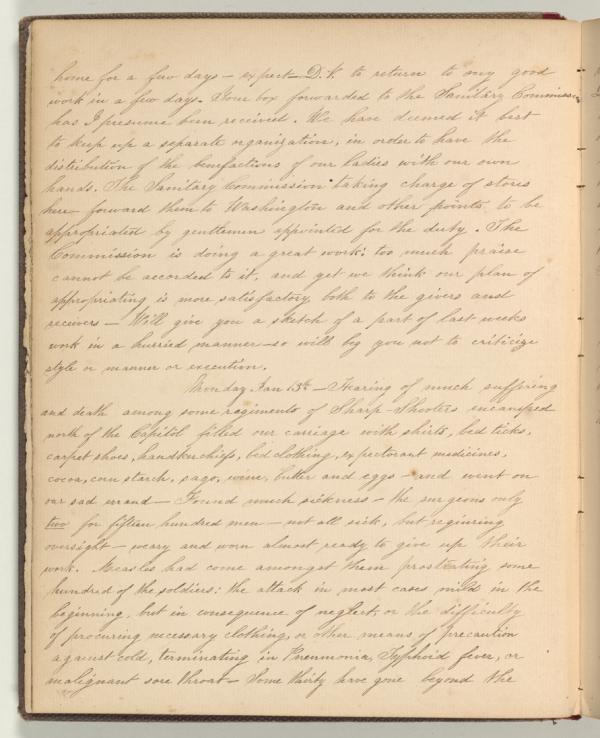 home for a few days – expect D.V. to return to my good
work in a few days. Your box forwarded to the Sanitary Commission
has I presume been received. We have deemed it best
to keep up a separate organization, in order to have the
distribution of the benefactions of our ladies with our own
hands. The Sanitary Commission taking charge of stores
here forward them to Washington and other points to be
appropriated by gentlemen appointed for the duty. The
Commission is doing a great work: too much praise
cannot be accorded to it, and yet we think our plan of
appropriating is more satisfactory both to the givers and
receivers – Will give you a sketch of a part of last weeks
work in a hurried manner – so will beg you not to criticize
style or manner or execution.
Monday Jan 13th – Hearing of much suffering
and death among some regiments of Sharp-Shooters encamped
north of the Capitol filled our carriage with shirts, bed ticks,
carpet shoes, handkerchiefs, bed clothing, expectorant medicines,
cocoa, corn starch, sago, wine, butter and eggs – and went on
our sad errand – Found much sickness – the surgeons only
two for fifteen hundred men – not all sick, but requiring
oversight – weary and worn almost ready to give up their
work. Measles had come amongst them prostrating some
hundred of the soldiers: the attack in most cases mild in the
beginning, but in consequence of neglect, or the difficulty
of procuring necessary clothing, or other means of precaution
against cold, terminating in Pneumonia, Typhoid fever, or
malignant sore throat – Some thirty have gone beyond the